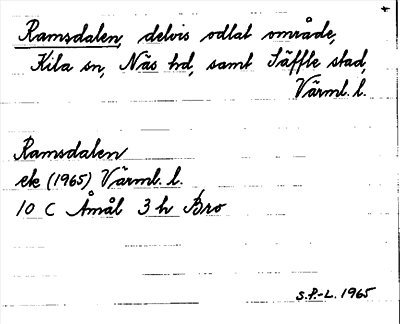 Ramsdalen, delvis odlat område,
Kila sn, Näs hd, samt Säffle stad,
Värml. l.
Ramsdalen
ek (1965) Värml. l.
10 C Åmål 3 h Bro
S.P.-L. 1965